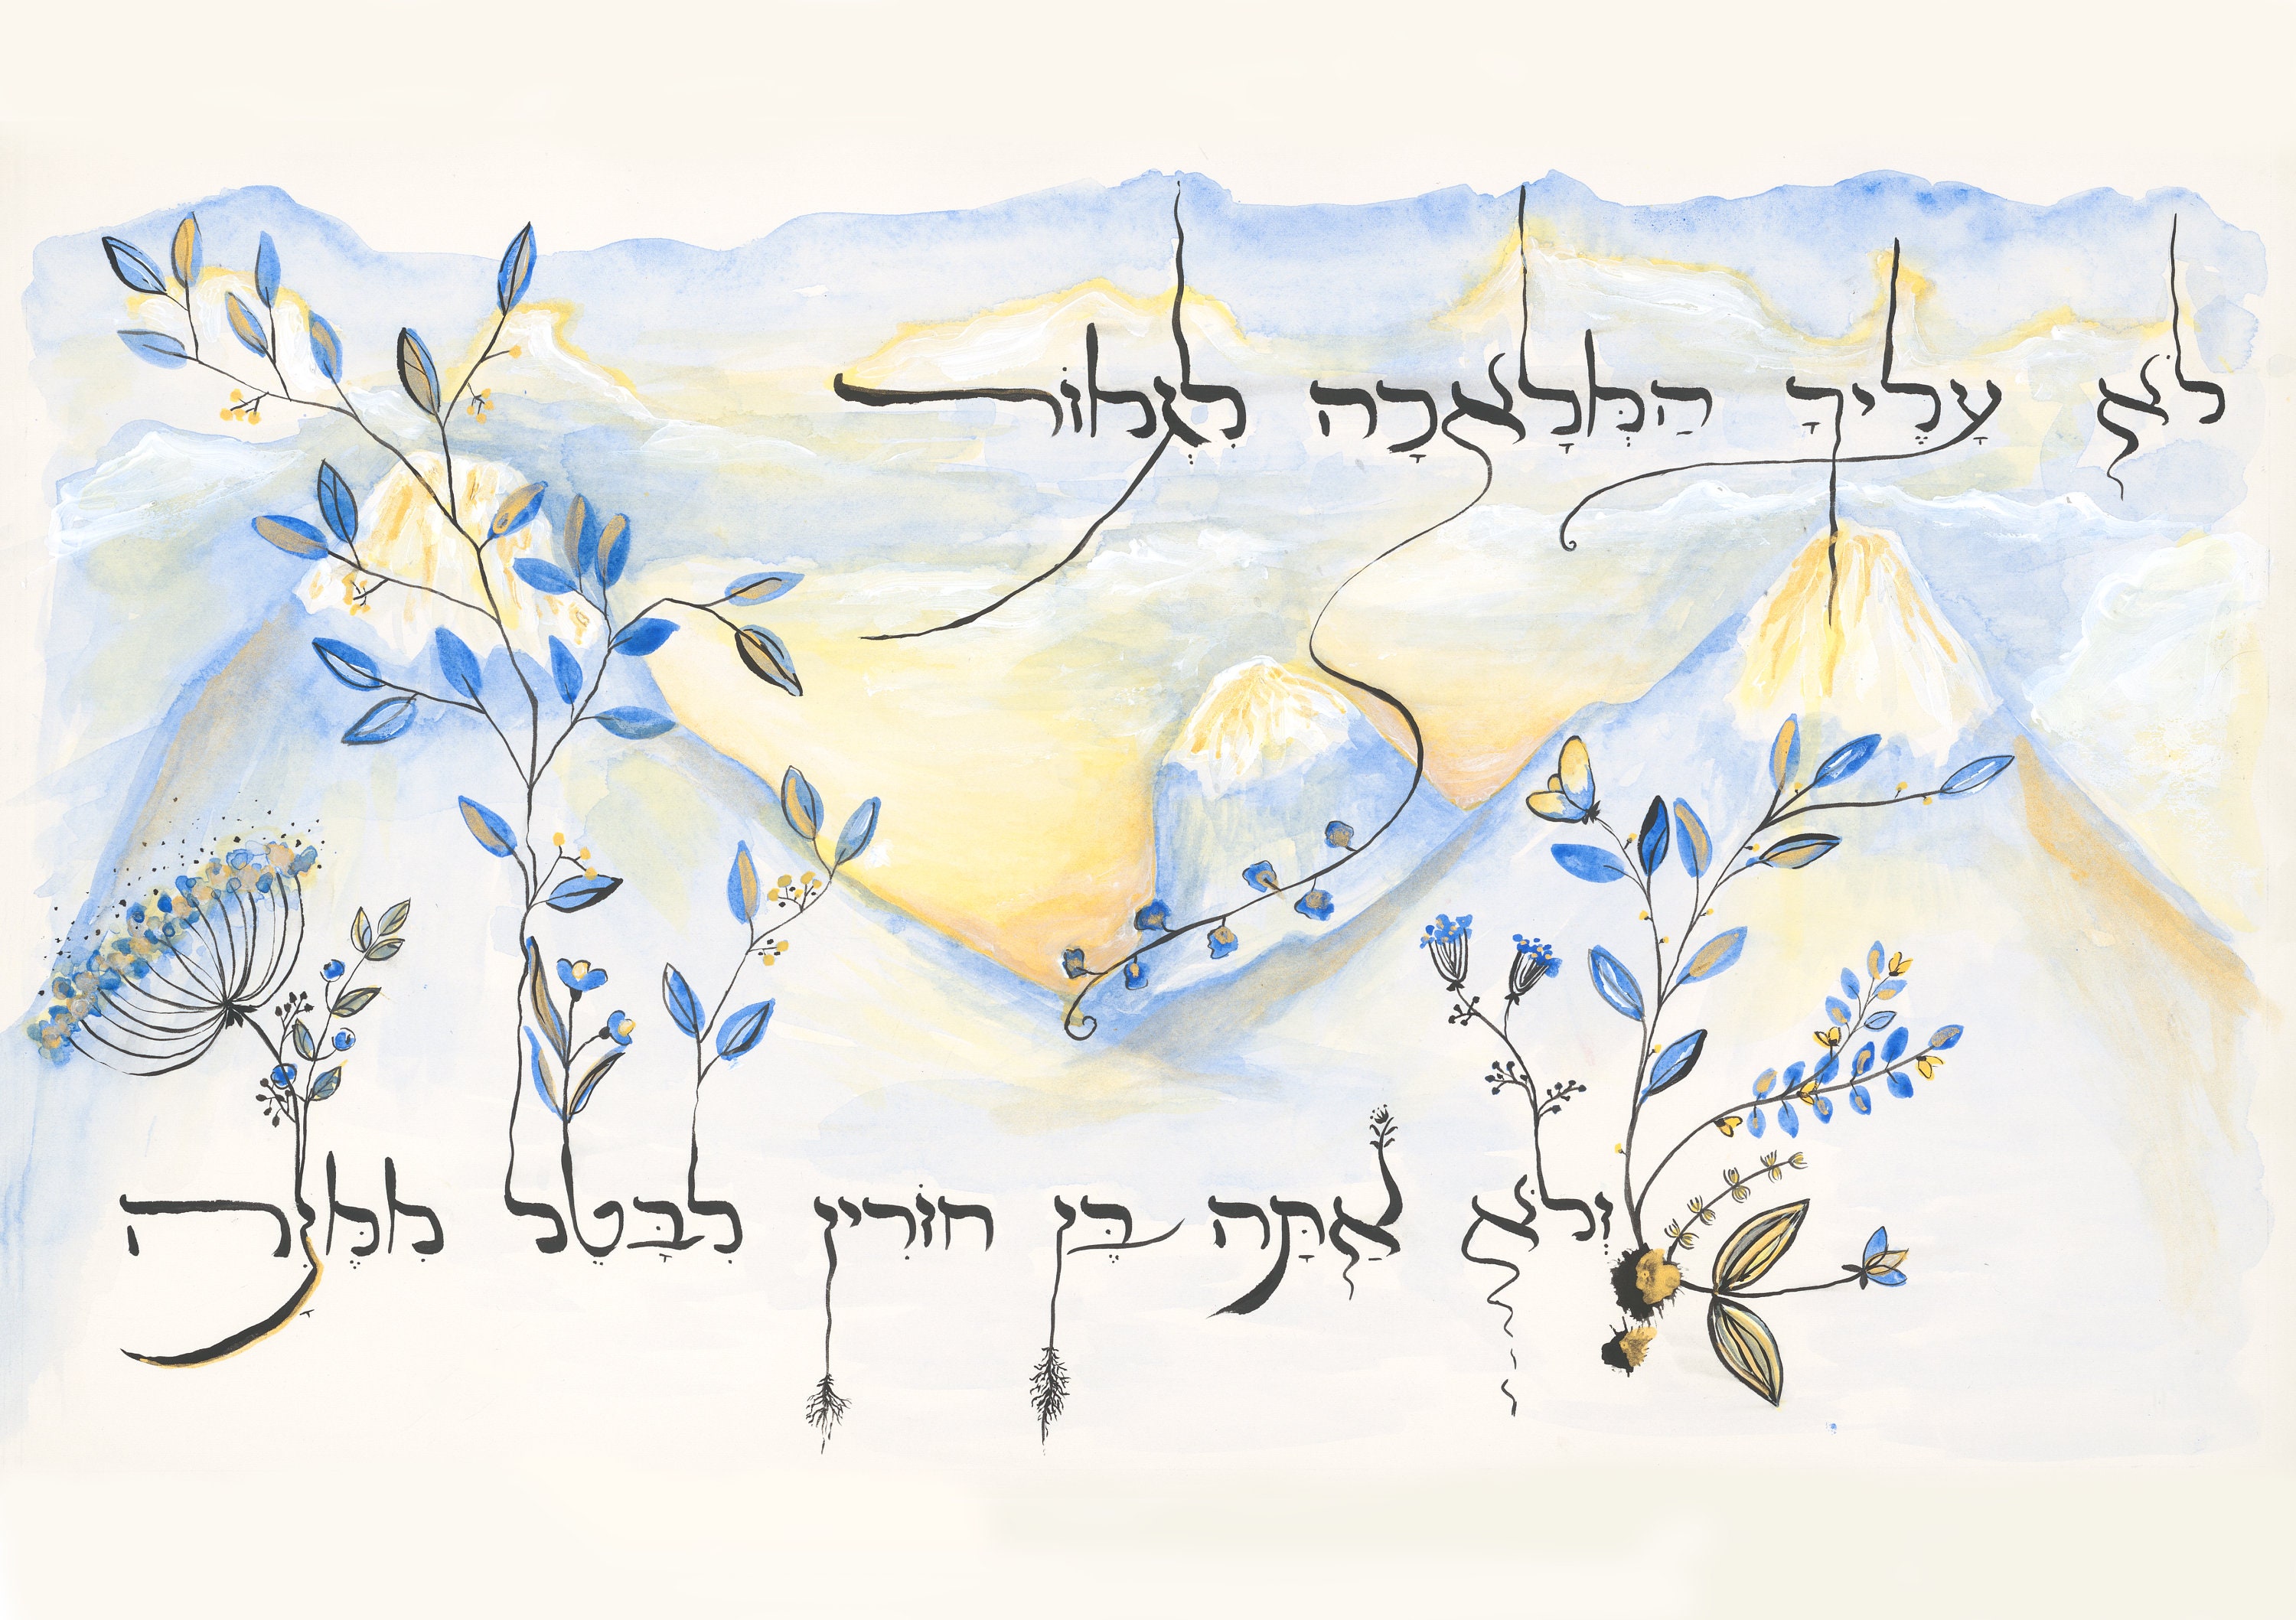 לֹא עָלֶיךָ הַמְּלָאכָה לִגְמוֹר
וְלֹא אַתָּה בֶּן חוֹרִין לִבָּטֵל מִמֶּנָּה